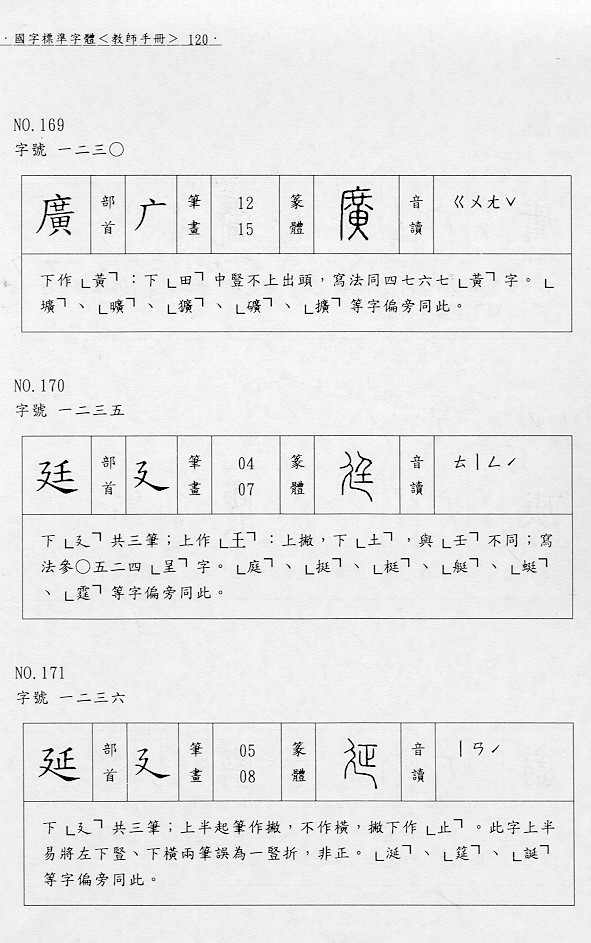 ·國字標準字體＜教師手冊＞ 120·
NO.169
字號 一二三〇
廣 部首 广 筆畫 12 15 篆體 廣 音讀 ㄍㄨㄤˇ
下作「黃」：下「田」中豎不上出頭，寫法同四七六七「黃」字。「
壙」、「曠」、「獷」、「礦」、「擴」等字偏旁同此。
NO.170
字號 一二三五
廷 部首 廴 筆畫 04 07 篆體 廷 音讀 ㄊㄧㄥˊ
下「廴」共三筆；上作「𡈼」：上撇，下「土」，與「壬」不同；寫
法參〇五二四「呈」字。「庭」、「挺」、「梃」、「艇」、「蜓」
、「霆」等字偏旁同此。
NO.171
字號 一二三六
延 部首 廴 筆畫 05 08 篆體 延 音讀 ㄧㄢˊ
下「廴」共三筆；上半起筆作撇，不作橫，撇下作「止」。此字上半
易將左下豎、下橫兩筆誤為一豎折，非正。「涎」、「筵」、「誕」
等字偏旁同此。